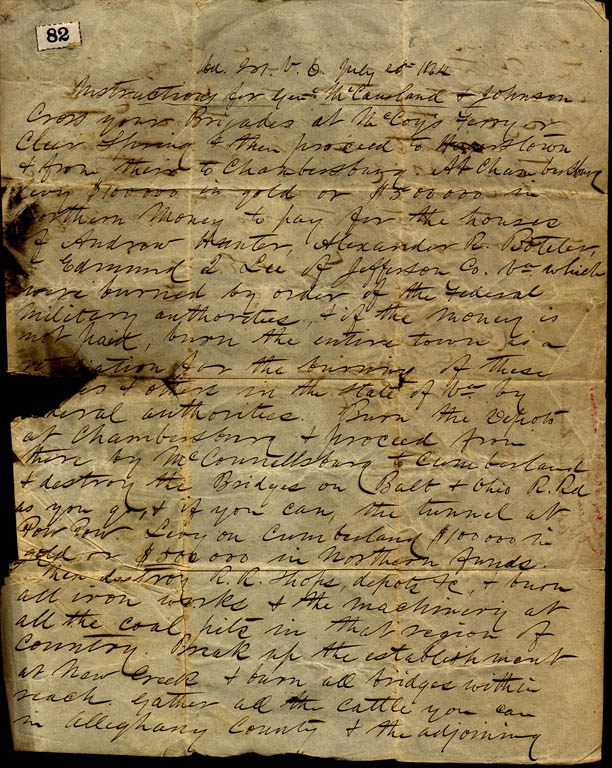 82
Hd. Qr. V. D. July 28th 1864
Instructions for Genls McCausland & Johnson.
Cross your Brigades at McCoy's Ferry or
Clear Spring & then proceed to Hancktown
& from there to Chambersburg. At Chambersburg
levy $100000 in gold or $500000 in
Northern Money to pay for the houses
of Andrew Hunter, Alexander R. Boteler,
& Edmund I. Lee of Jefferson Co. Va which
were burned by order of the Federal
military authorities, & if the money is
not paid, burn the entire town as a
retaliation for the burning of these
& others in the State of Va by
Federal authorities. Burn the Depots
at Chambersburg & proceed from
there by McConnellsburg to Cumberland
& destroy the Bridges on Balt & Ohio R. Rd
as you go, & if you can, the tunnel at
Paw Paw. Levy on Cumberland $100000 in
gold or $500000 in Northern funds.
Then destroy R. R. Shops, depots &c, & burn
all iron works & the machinery at
all the coal pits in that region of
country. Break up the establishment
at New Creek & burn all bridges within
reach. Gather all the cattle you can
in Alleghany County & the adjoining